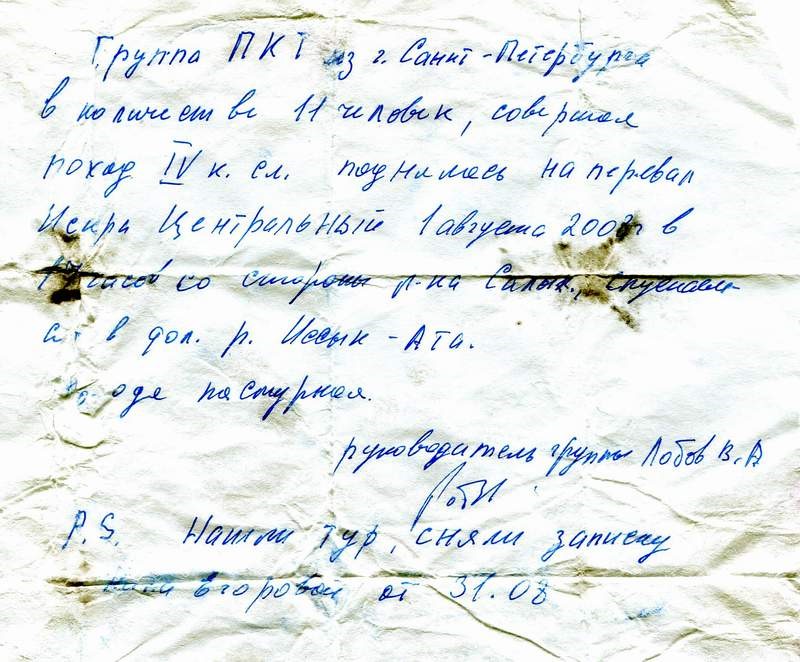 Группа ПКТ из г. Санкт-Петербурга
в количестве 11 человек, совершая
поход IV к. сл. поднялась на перевал
Искра Центральный 1 августа в
часов со стороны р-ка спускаем
ся в дол. р. Иссык-Ата.
пасмурная.
руководитель группы Лобов В.А
P.S. Нашли тур, сняли записку
от 31.08